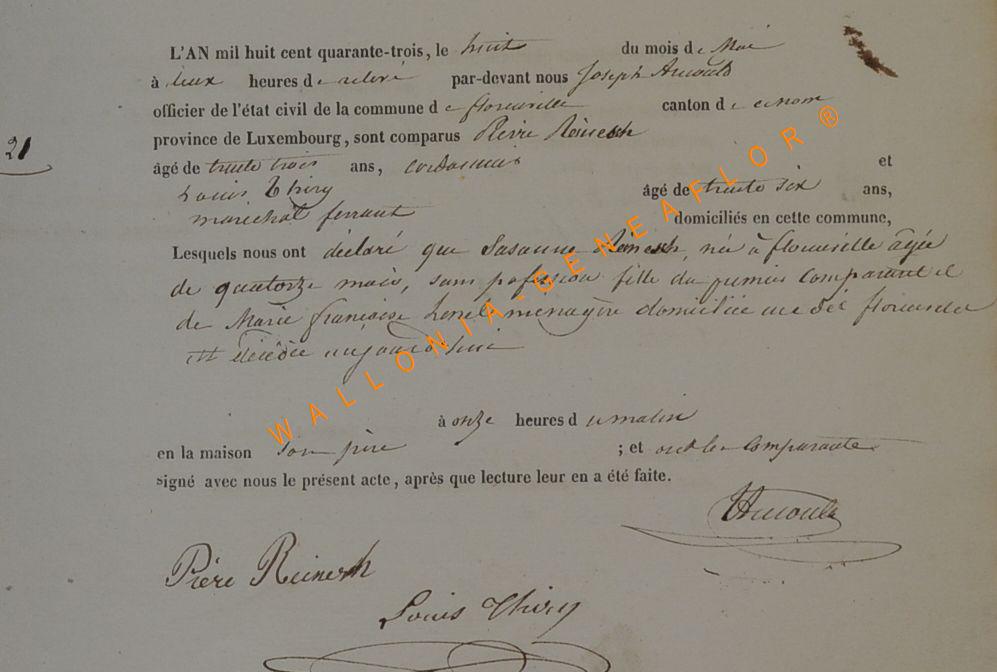 L'AN mil huit cent quarante-trois, le huit du mois de Mai
à deux heures de relevé par-devant nous Joseph Arnould
officier de l'état civil de la commune de florenville canton de ce nom
province de Luxembourg, sont comparus Pierre Reinesch
21
âgé de trente trois ans, cordonnier et
Louis Thiry âgé de trente six ans,
maréchal ferrant domiciliés en cette commune,
Lesquels nous ont déclaré que Susanne Reinesch, née à florenville agée
de quatorze mois, sans profession fille du premier Comparant et
de Marie françoise ménagère domiciliée florenville
est décédée aujourd'hui
à onze heures du matin
en la maison son père ; et ont les Comparants
signé avec nous le présent acte, après que lecture leur en a été faite.
Arnould
Pière Reinesch
Louis Thiry
WALLONIA-GENEAFLOR ®